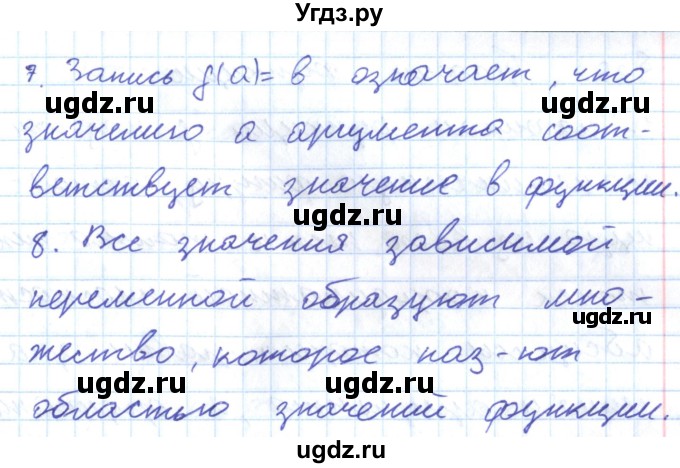 Угдз.ру
7. Запись f(a)= в означает, что
ugdz.ru ugdz.ru
значению а аргумента соот-
ветствует значение в функции.
ugdz.ru
8. Все значения зависимой
ugdz.ru ugdz.ru
переменной образуют мно-
ugdz.ru
жество, которое наз-ют
ugdz.ru ugdz.ru
областью значений функции.
ugdz.ru